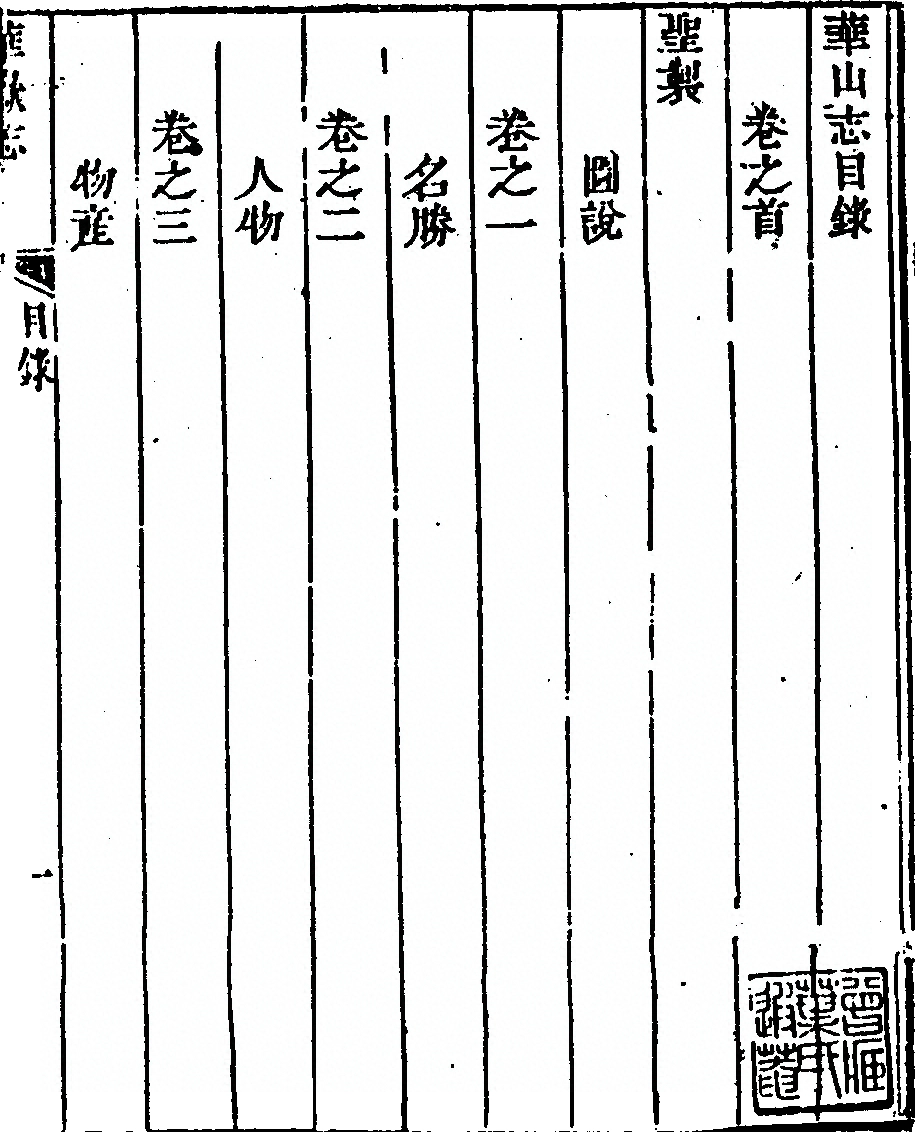 華山志目錄
卷之首
聖製
圖說
卷之一
名勝
卷之二
人物
卷之三
物產
目錄
一